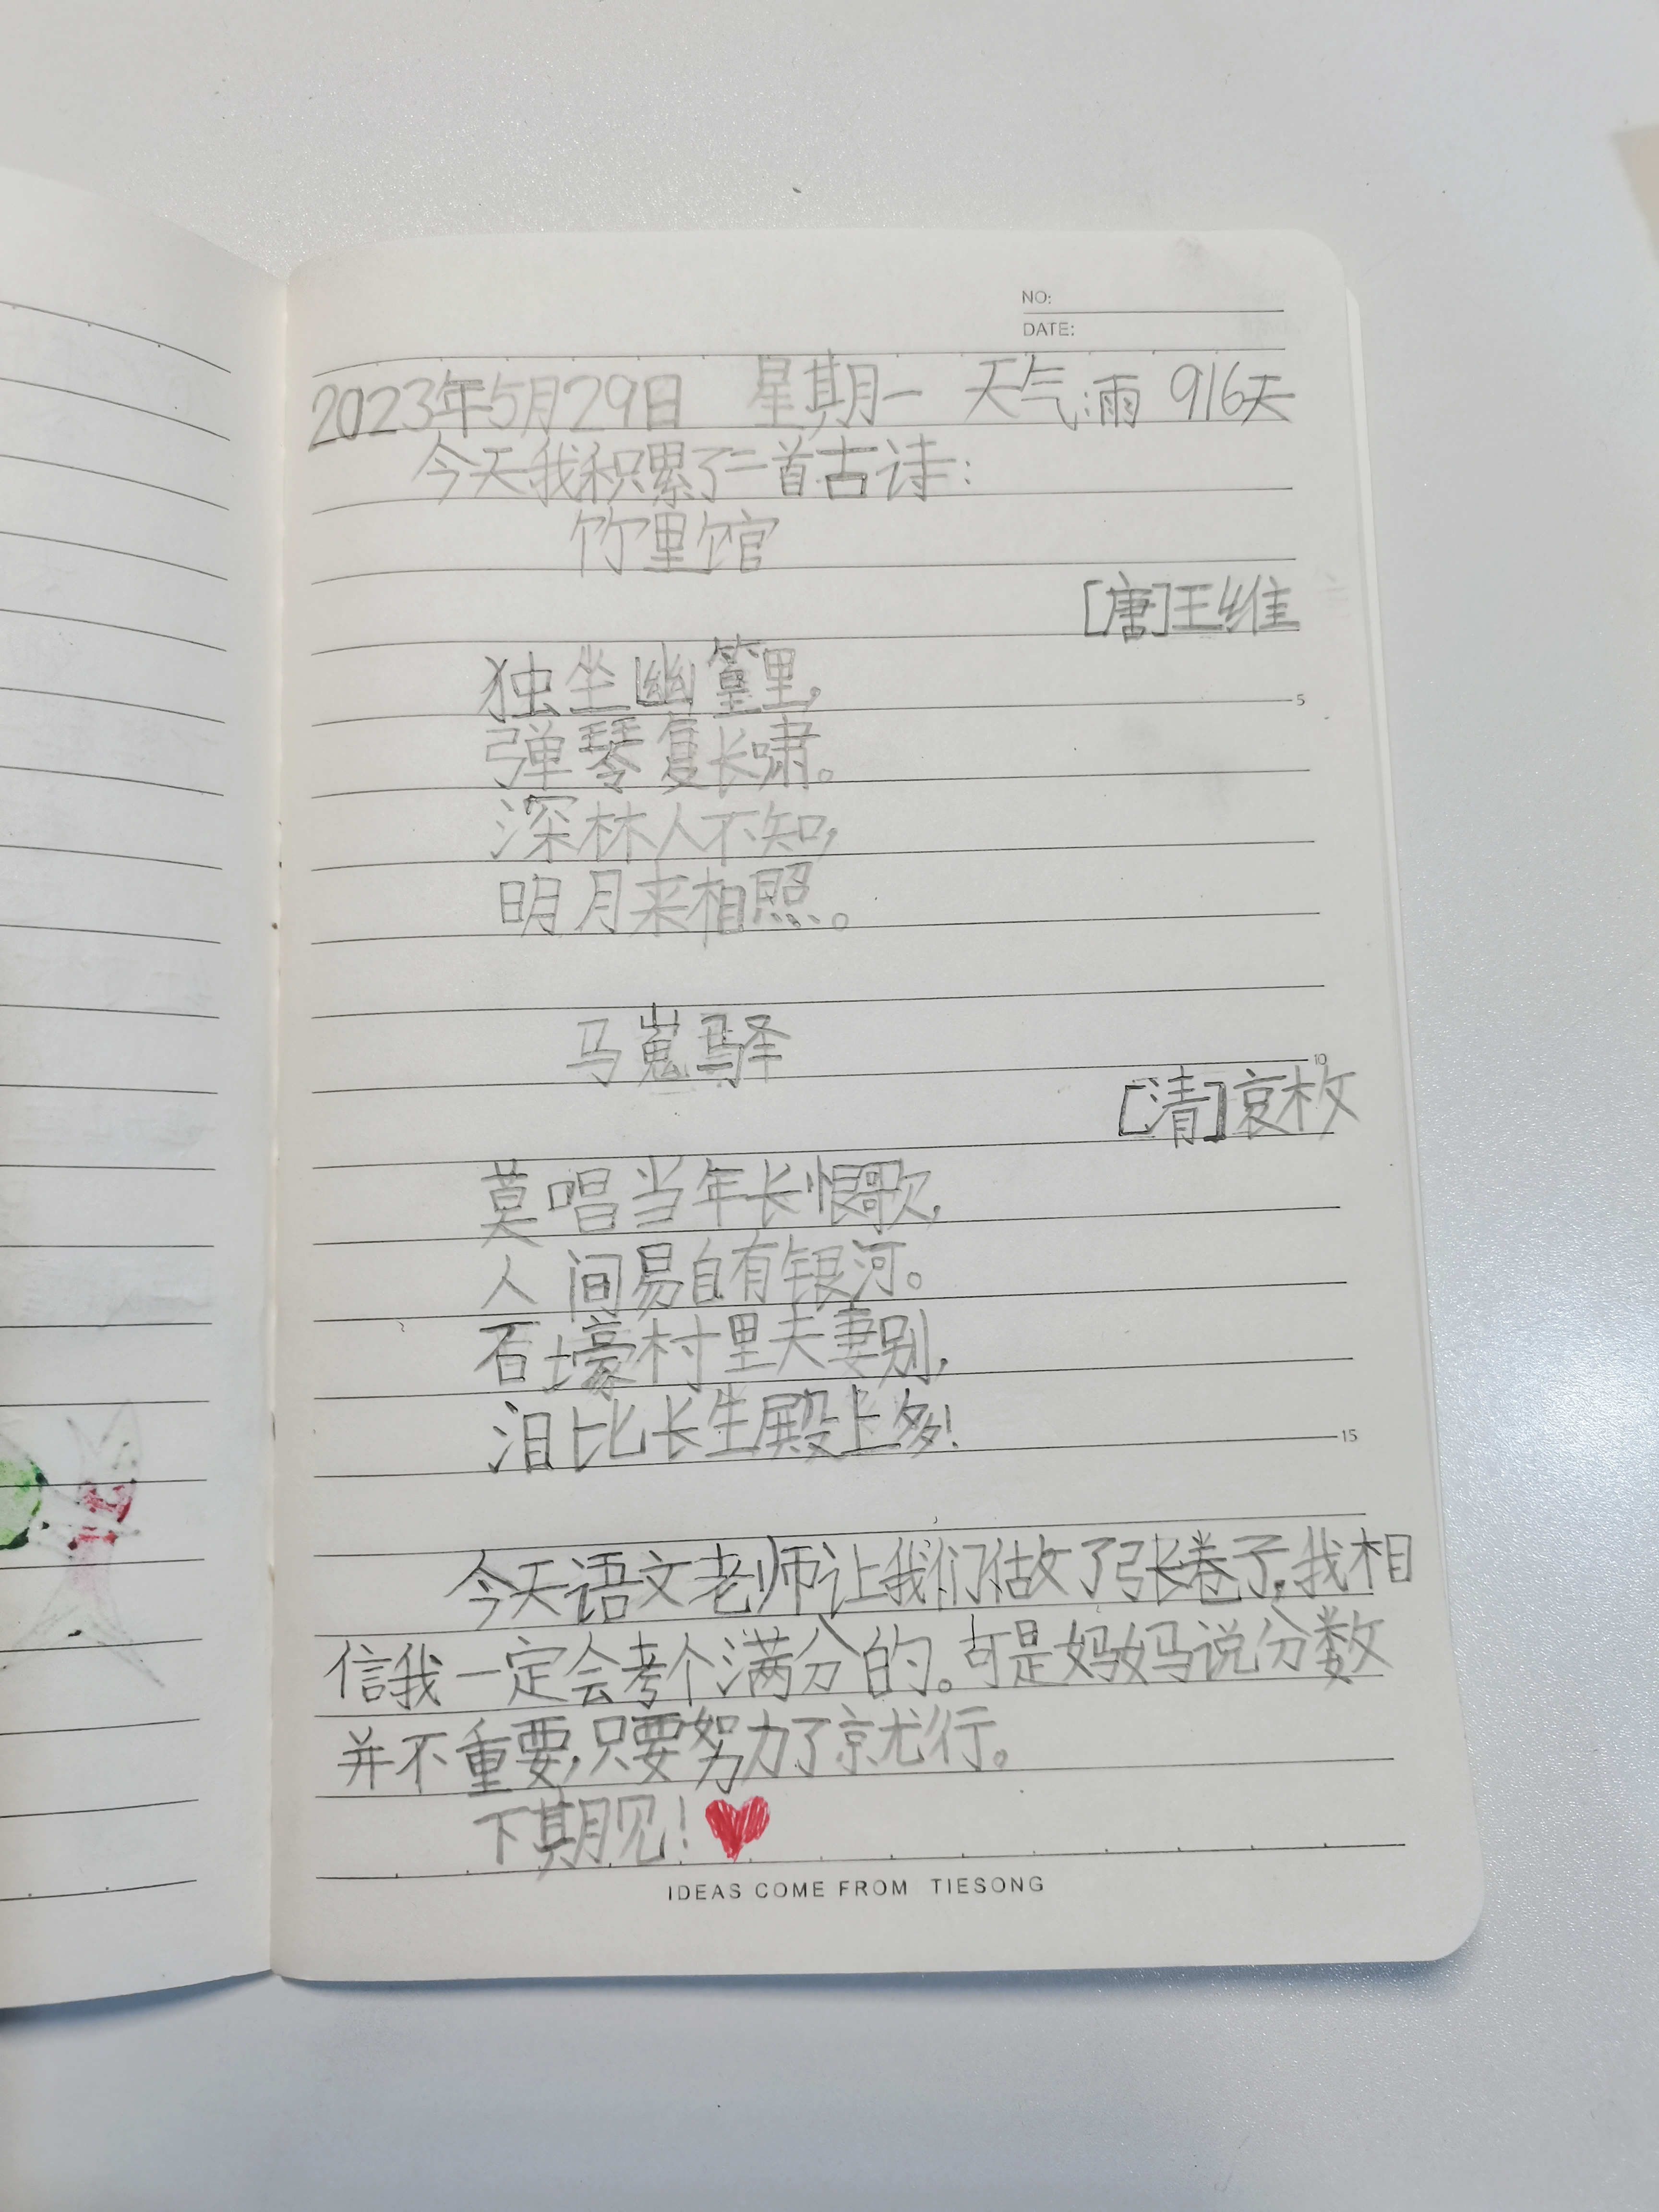 NO:
DATE:
2023年5月29日 星期一 天气:雨 916天
今天我积累了二首古诗:
竹里馆
[唐]王维
独坐幽篁里,
弹琴复长啸。
深林人不知,
明月来相照。
马嵬驿
[清]袁枚
莫唱当年长恨歌,
人间易自有银河。
5
10
石壕村里夫妻别,
泪比长生殿上多!
15
今天语文老师让我们做了张卷子,我相
信我一定会考个满分的。可是妈妈说分数
并不重要,只要努力了就行。
下期见!
IDEAS COME FROM TIESONG